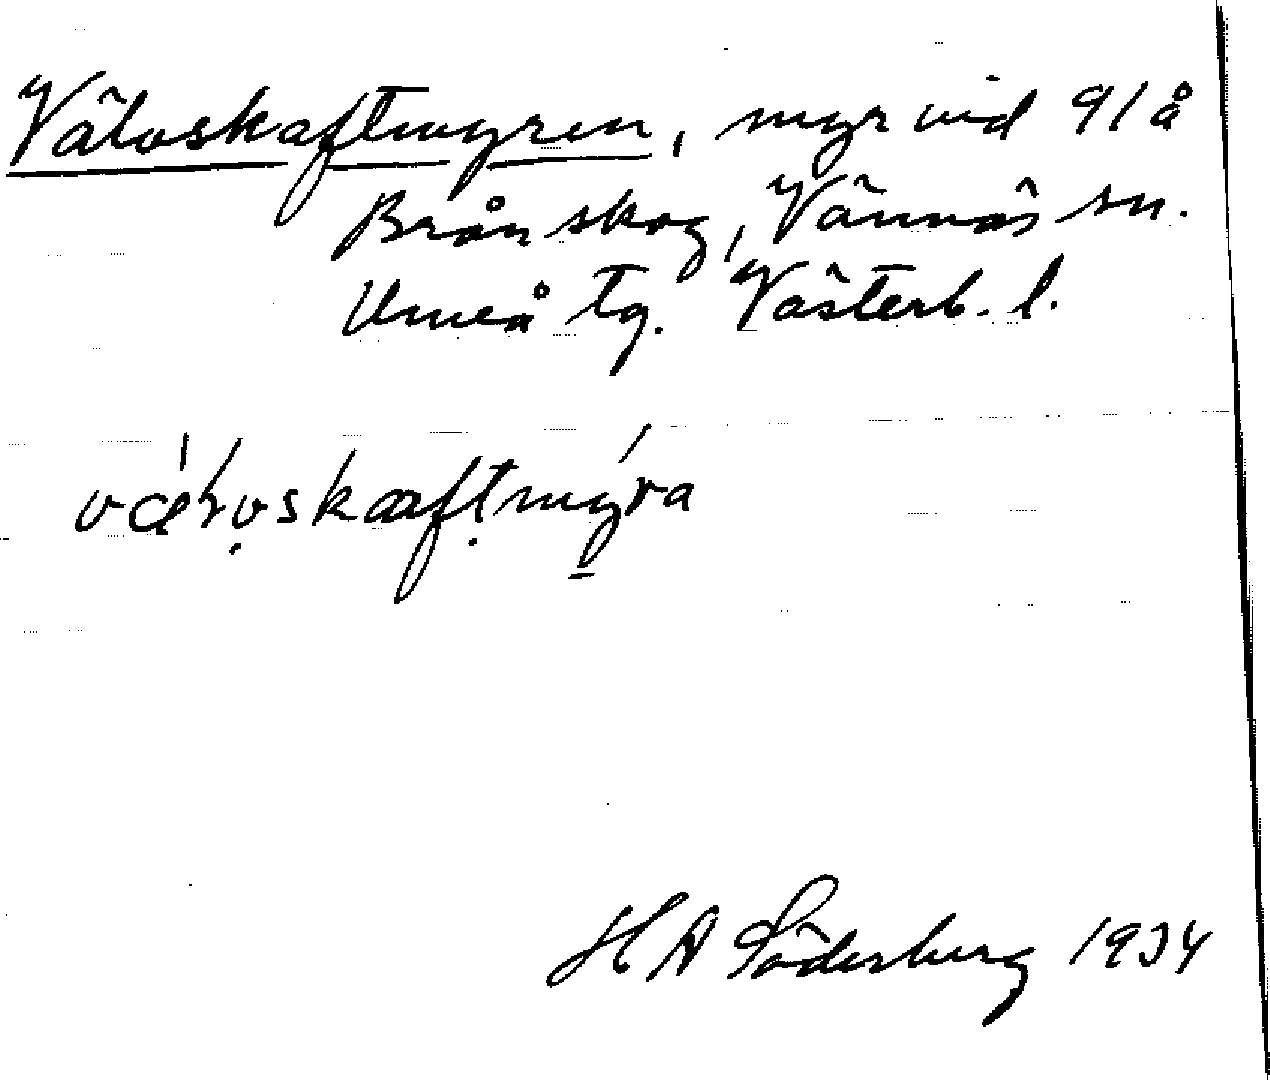 Välvskaftmyren, myr vid 91 å
Brånskog, Vännäs sn.
Umeå tg. Västerb. l.
H A Söderberg 1934